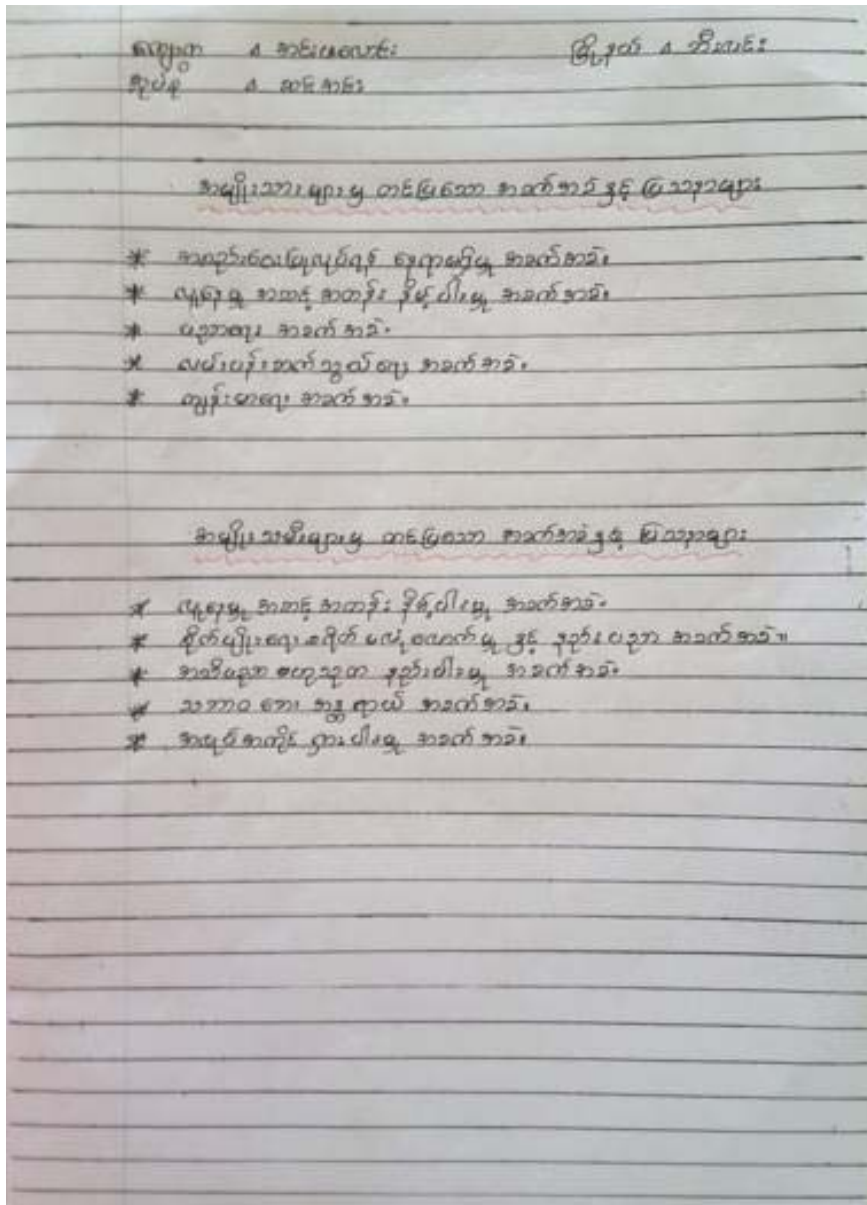 ကျေးရွာ ၊ အင်းပလောင်း မြို့နယ် ၊ ဘီးလင်း
အုပ်စု ၊ ဆင်အင်း
အမျိုးသားများမှ တင်ပြသော အခက်အခဲ နှင့် ပြဿနာများ
* အစည်းဝေးပြုလုပ်ရန် နေရာမရှိမှု အခက်အခဲ။
* လူနေမှု အဆင့် အတန်း နိမ့်ပါးမှု အခက်အခဲ။
* ပညာရေး အခက်အခဲ။
* လမ်းပန်းဆက်သွယ်ရေး အခက်အခဲ။
* ကျန်းမာရေး အခက်အခဲ။
အမျိုးသမီးများမှ တင်ပြသော အခက်အခဲ နှင့် ပြဿနာများ
* လူနေမှု အဆင့် အတန်း နိမ့်ပါးမှု အခက်အခဲ။
* စိုက်ပျိုးရေး စရိတ် မလုံလောက်မှု နှင့် နည်းပညာ အခက်အခဲ။
* အသိပညာ ဗဟုသုတ နည်းပါးမှု အခက်အခဲ။
* သဘာဝ ဘေး အန္တရာယ် အခက်အခဲ။
* အလုပ်အကိုင် ရှားပါးမှု အခက်အခဲ။